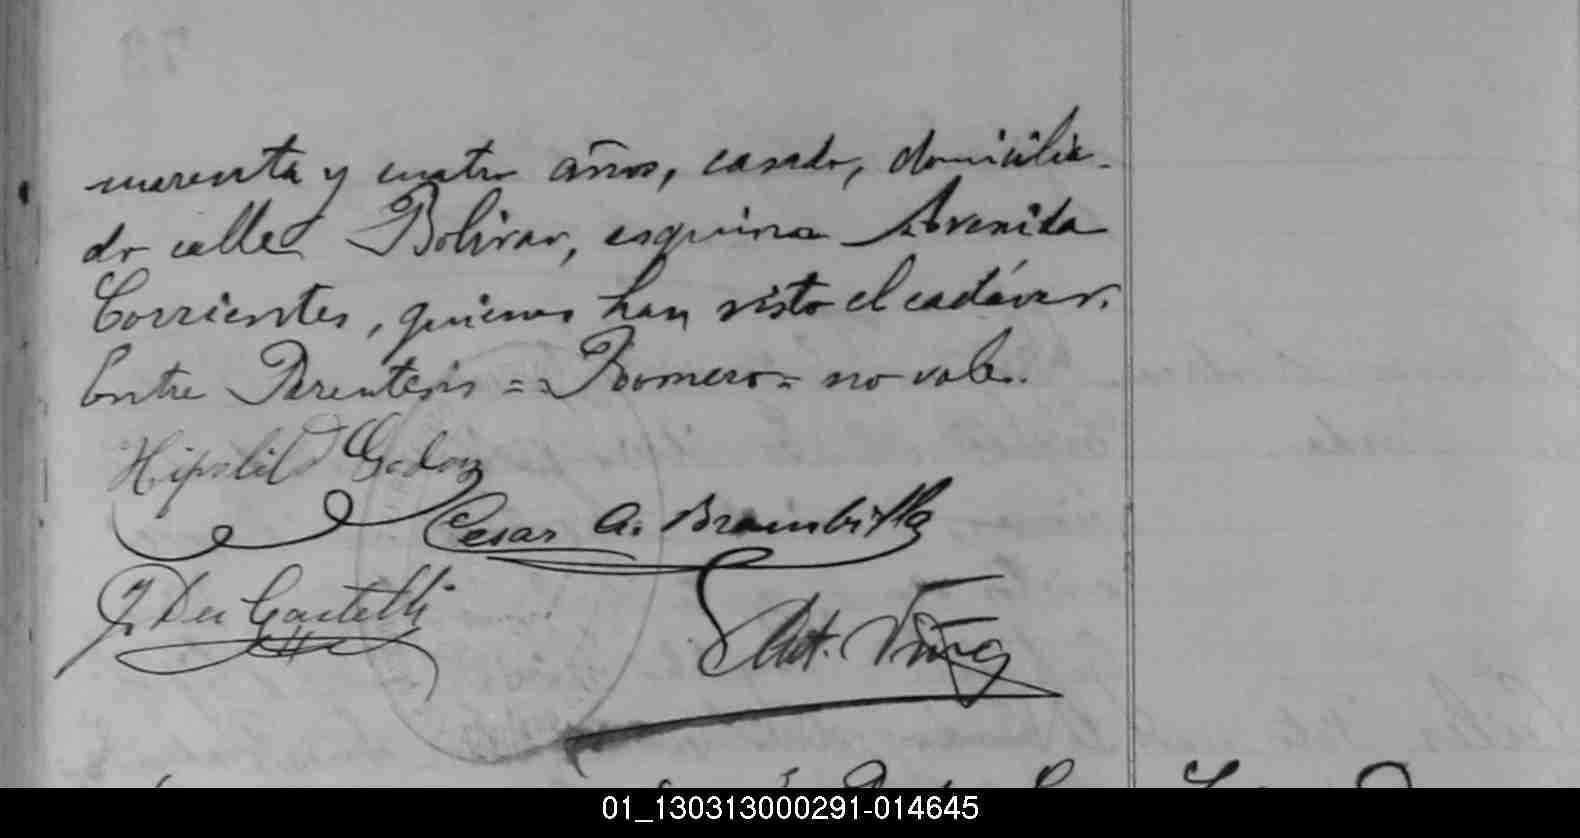 cuarenta y cuatro años, casado, domicilia-
do calle Bolivar, esquina Avenida
Corrientes, quienes han visto el cadáver.
Entre Parentesis =- Romero - no vale.
Hipólito Godoy
Cesar A. Brambilla
J. Del Castelli
Ant. Nuñez
01_130313000291-014645